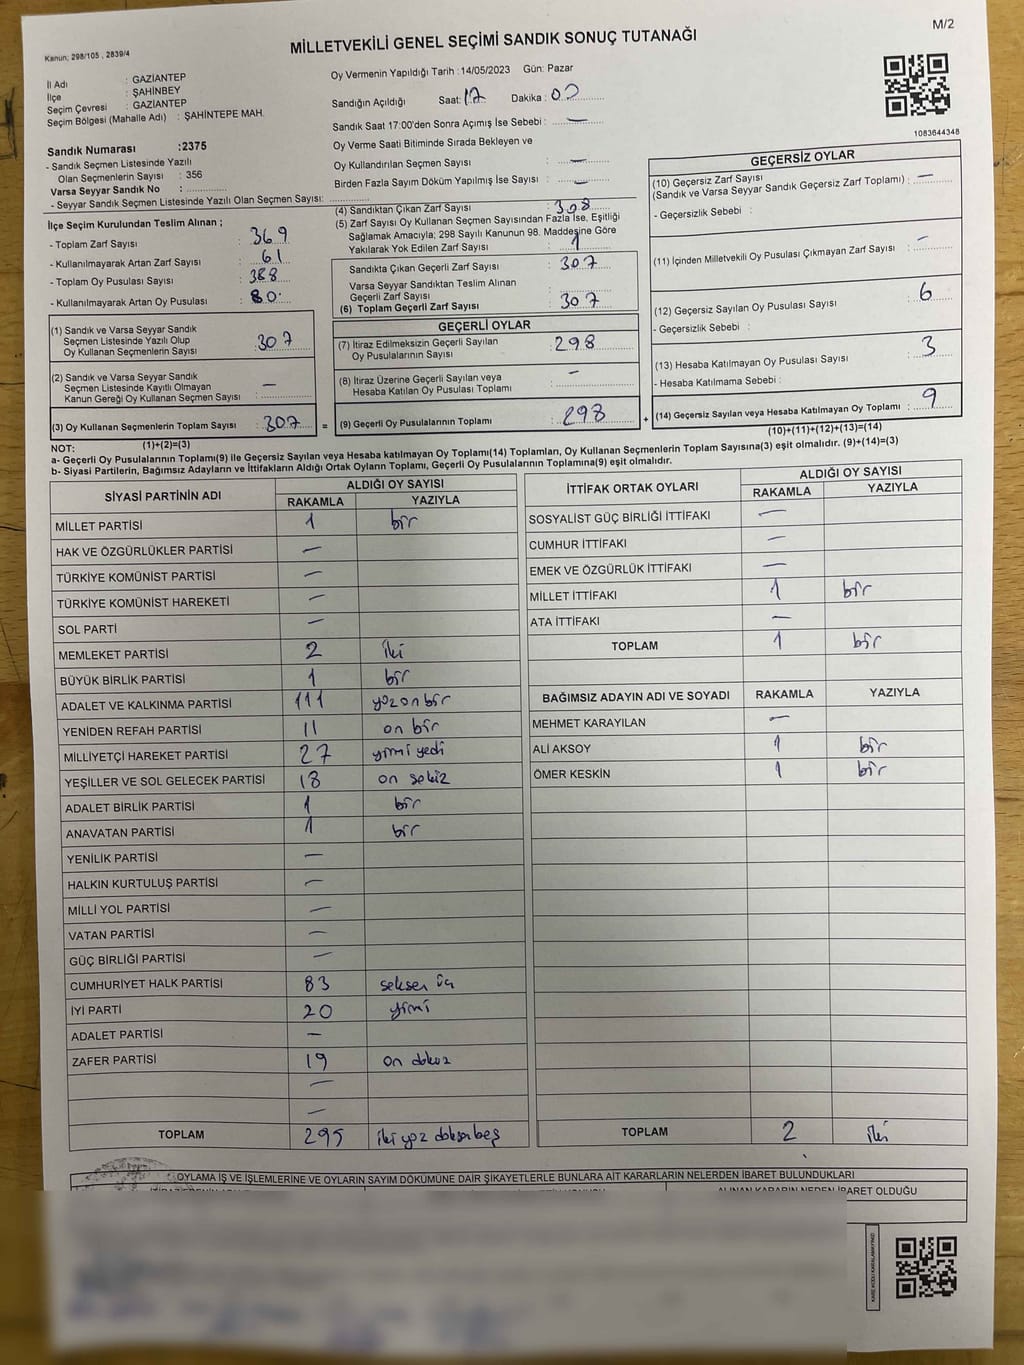 M/2
Kanun; 298/105 , 2839/4
MİLLETVEKİLİ GENEL SEÇİMİ SANDIK SONUÇ TUTANAĞI
İl Adı : GAZİANTEP
İlçe : ŞAHİNBEY
Seçim Çevresi : GAZİANTEP
Seçim Bölgesi (Mahalle Adı) : ŞAHİNTEPE MAH.
Sandık Numarası :2375
- Sandık Seçmen Listesinde Yazılı
Olan Seçmenlerin Sayısı : 356
Varsa Seyyar Sandık No :
- Seyyar Sandık Seçmen Listesinde Yazılı Olan Seçmen Sayısı:
Oy Vermenin Yapıldığı Tarih :14/05/2023 Gün: Pazar
Sandığın Açıldığı Saat: 17 Dakika : 00
Sandık Saat 17:00'den Sonra Açımış İse Sebebi : —
Oy Verme Saati Bitiminde Sırada Bekleyen ve
Oy Kullandırılan Seçmen Sayısı : —
Birden Fazla Sayım Döküm Yapılmış İse Sayısı : —
1083644348
İlçe Seçim Kurulundan Teslim Alınan ;
- Toplam Zarf Sayısı : 369
- Kullanılmayarak Artan Zarf Sayısı : 61
- Toplam Oy Pusulası Sayısı : 388
- Kullanılmayarak Artan Oy Pusulası : 80
(1) Sandık ve Varsa Seyyar Sandık
Seçmen Listesinde Yazılı Olup
Oy Kullanan Seçmenlerin Sayısı : 307
(2) Sandık ve Varsa Seyyar Sandık
Seçmen Listesinde Kayıtlı Olmayan
Kanun Gereği Oy Kullanan Seçmen Sayısı : —
(3) Oy Kullanan Seçmenlerin Toplam Sayısı : 307
(1)+(2)=(3)
(4) Sandıktan Çıkan Zarf Sayısı : 308
(5) Zarf Sayısı Oy Kullanan Seçmen Sayısından Fazla İse, Eşitliği
Sağlamak Amacıyla; 298 Sayılı Kanunun 98. Maddesine Göre
Yakılarak Yok Edilen Zarf Sayısı : 1
Sandıkta Çıkan Geçerli Zarf Sayısı : 307
Varsa Seyyar Sandıktan Teslim Alınan
Geçerli Zarf Sayısı :
(6) Toplam Geçerli Zarf Sayısı : 307
GEÇERLİ OYLAR
(7) İtiraz Edilmeksizin Geçerli Sayılan
Oy Pusulalarının Sayısı : 298
(8) İtiraz Üzerine Geçerli Sayılan veya
Hesaba Katılan Oy Pusulası Toplamı : —
= (9) Geçerli Oy Pusulalarının Toplamı : 298 +
GEÇERSİZ OYLAR
(10) Geçersiz Zarf Sayısı
(Sandık ve Varsa Seyyar Sandık Geçersiz Zarf Toplamı) : —
- Geçersizlik Sebebi :
(11) İçinden Milletvekili Oy Pusulası Çıkmayan Zarf Sayısı : —
(12) Geçersiz Sayılan Oy Pusulası Sayısı : 6
- Geçersizlik Sebebi :
(13) Hesaba Katılmayan Oy Pusulası Sayısı : 3
- Hesaba Katılmama Sebebi :
(14) Geçersiz Sayılan veya Hesaba Katılmayan Oy Toplamı : 9
(10)+(11)+(12)+(13)=(14)
NOT:
a- Geçerli Oy Pusulalarının Toplamı(9) ile Geçersiz Sayılan veya Hesaba katılmayan Oy Toplamı(14) Toplamları, Oy Kullanan Seçmenlerin Toplam Sayısına(3) eşit olmalıdır. (9)+(14)=(3)
b- Siyasi Partilerin, Bağımsız Adayların ve İttifakların Aldığı Ortak Oyların Toplamı, Geçerli Oy Pusulalarının Toplamına(9) eşit olmalıdır.
SİYASİ PARTİNİN ADI ALDIĞI OY SAYISI
RAKAMLA YAZIYLA
MİLLET PARTİSİ 1 bir
HAK VE ÖZGÜRLÜKLER PARTİSİ —
TÜRKİYE KOMÜNİST PARTİSİ —
TÜRKİYE KOMÜNİST HAREKETİ —
SOL PARTİ —
MEMLEKET PARTİSİ 2 iki
BÜYÜK BİRLİK PARTİSİ 1 bir
ADALET VE KALKINMA PARTİSİ 111 yüzonbir
YENİDEN REFAH PARTİSİ 11 on bir
MİLLİYETÇİ HAREKET PARTİSİ 27 yirmi yedi
YEŞİLLER VE SOL GELECEK PARTİSİ 18 on sekiz
ADALET BİRLİK PARTİSİ 1 bir
ANAVATAN PARTİSİ 1 bir
YENİLİK PARTİSİ —
HALKIN KURTULUŞ PARTİSİ —
MİLLİ YOL PARTİSİ —
VATAN PARTİSİ —
GÜÇ BİRLİĞİ PARTİSİ —
CUMHURİYET HALK PARTİSİ 83 seksen üç
İYİ PARTİ 20 yirmi
ADALET PARTİSİ —
ZAFER PARTİSİ 19 on dokuz
—
—
TOPLAM 295 iki yüz doksan beş
İTTİFAK ORTAK OYLARI ALDIĞI OY SAYISI
RAKAMLA YAZIYLA
SOSYALİST GÜÇ BİRLİĞİ İTTİFAKI —
CUMHUR İTTİFAKI —
EMEK VE ÖZGÜRLÜK İTTİFAKI —
MİLLET İTTİFAKI 1 bir
ATA İTTİFAKI —
TOPLAM 1 bir
BAĞIMSIZ ADAYIN ADI VE SOYADI RAKAMLA YAZIYLA
MEHMET KARAYILAN —
ALİ AKSOY 1 bir
ÖMER KESKİN 1 bir
TOPLAM 2 iki
OYLAMA İŞ VE İŞLEMLERİNE VE OYLARIN SAYIM DÖKÜMÜNE DAİR ŞİKAYETLERLE BUNLARA AİT KARARLARIN NELERDEN İBARET BULUNDUKLARI
ALINAN KARARIN NEDEN İBARET OLDUĞU
KARE KODU KARALAMAYINIZ!